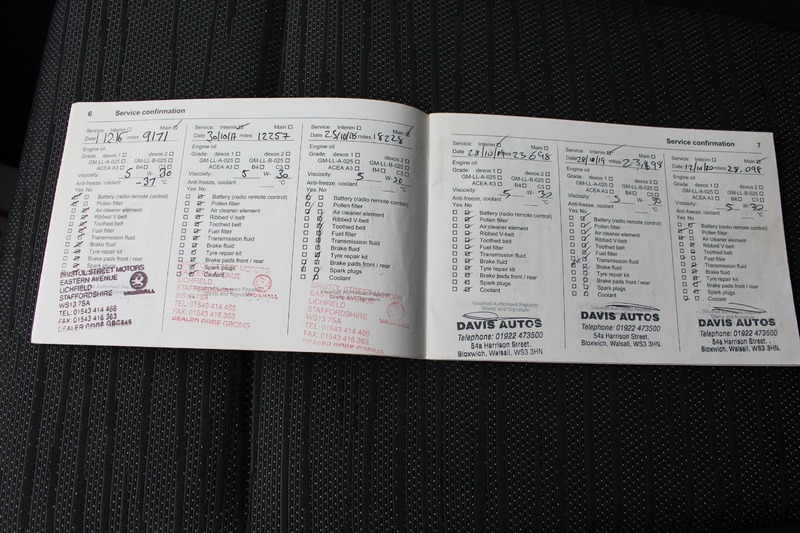 6 Service confirmation
Service: Interim Main
Date 1 12 16 miles 9171
Engine oil
Grade: dexos 1 dexos 2
GM-LL-A-025 GM-LL-B-025
ACEA A3 B4 C3
Viscosity 5 W- 30
Anti-freeze, coolant -37 °C
Yes No
Battery (radio remote control)
Pollen filter
Air cleaner element
Ribbed V-belt
Toothed belt
Fuel filter
Transmission fluid
Brake fluid
Tyre repair kit
Brake pads front / rear
Spark plugs
BRISTOL STREET MOTORS
EASTERN AVENUE
LICHFIELD
STAFFORDSHIRE
WS13 7SA
TEL: 01543 414 466
FAX: 01543 416 363
DEALER CODE GBC845
Service: Interim Main
Date 30/10/17 miles 12257
Engine oil
Grade: dexos 1 dexos 2
GM-LL-A-025 GM-LL-B-025
ACEA A3 B4 C3
Viscosity 5 W- 30
Anti-freeze, coolant °C
Yes No
Battery (radio remote control)
Pollen filter
Air cleaner element
Ribbed V-belt
Toothed belt
Fuel filter
Transmission fluid
Brake fluid
Tyre repair kit
Brake pads front / rear
Spark plugs
Coolant
LICHFIELD
STAFFORDSHIRE
WS13 7SA
TEL: 01543 414 466
FAX: 01543 416 363
DEALER CODE GBC845
Service: Interim Main
Date miles 18228
Engine oil
Grade: dexos 1 dexos 2
GM-LL-A-025 GM-LL-B-025
ACEA A3 B4 C3
Viscosity 5 W- 30
Anti-freeze, coolant °C
Yes No
Battery (radio remote control)
Pollen filter
Air cleaner element
Ribbed V-belt
Toothed belt
Fuel filter
Transmission fluid
Brake fluid
Tyre repair kit
Brake pads front / rear
Spark plugs
Coolant
BRISTOL STREET MOTORS
EASTERN AVENUE
LICHFIELD
STAFFORDSHIRE
WS13 7SA
TEL: 01543 414 466
FAX: 01543 416 363
DEALER CODE GBC845
Service confirmation 7
Service: Interim Main
Date 28/10/19 miles 23,698
Engine oil
Grade: dexos 1 dexos 2
GM-LL-A-025 GM-LL-B-025
ACEA A3 B4 C3
Viscosity 5 W- 30
Anti-freeze, coolant °C
Yes No
Battery (radio remote control)
Pollen filter
Air cleaner element
Ribbed V-belt
Toothed belt
Fuel filter
Transmission fluid
Brake fluid
Tyre repair kit
Brake pads front / rear
Spark plugs
Coolant
Vauxhall Authorised Repairer
Stamp and Signature
DAVIS AUTOS
Telephone: 01922 473500
54a Harrison Street,
Bloxwich, Walsall, WS3 3HN.
Service: Interim Main
Date 28/10/19 miles
Engine oil
Grade: dexos 1 dexos 2
GM-LL-A-025 GM-LL-B-025
ACEA A3 B4 C3
Viscosity 5 W- 30
Anti-freeze, coolant °C
Yes No
Battery (radio remote control)
Pollen filter
Air cleaner element
Ribbed V-belt
Toothed belt
Fuel filter
Transmission fluid
Brake fluid
Tyre repair kit
Brake pads front / rear
Spark plugs
Coolant
DAVIS AUTOS
Telephone: 01922 473500
54a Harrison Street,
Bloxwich, Walsall, WS3 3HN.
Service: Interim Main
Date 12/10/20 miles 28,098
Engine oil
Grade: dexos 1 dexos 2
GM-LL-A-025 GM-LL-B-025
ACEA A3 B4 C3
Viscosity 5 W- 30
Anti-freeze, coolant °C
Yes No
Battery (radio remote control)
Pollen filter
Air cleaner element
Ribbed V-belt
Toothed belt
Fuel filter
Transmission fluid
Brake fluid
Tyre repair kit
Brake pads front / rear
Spark plugs
Coolant
DAVIS AUTOS
Telephone: 01922 473500
54a Harrison Street,
Bloxwich, Walsall, WS3 3HN.